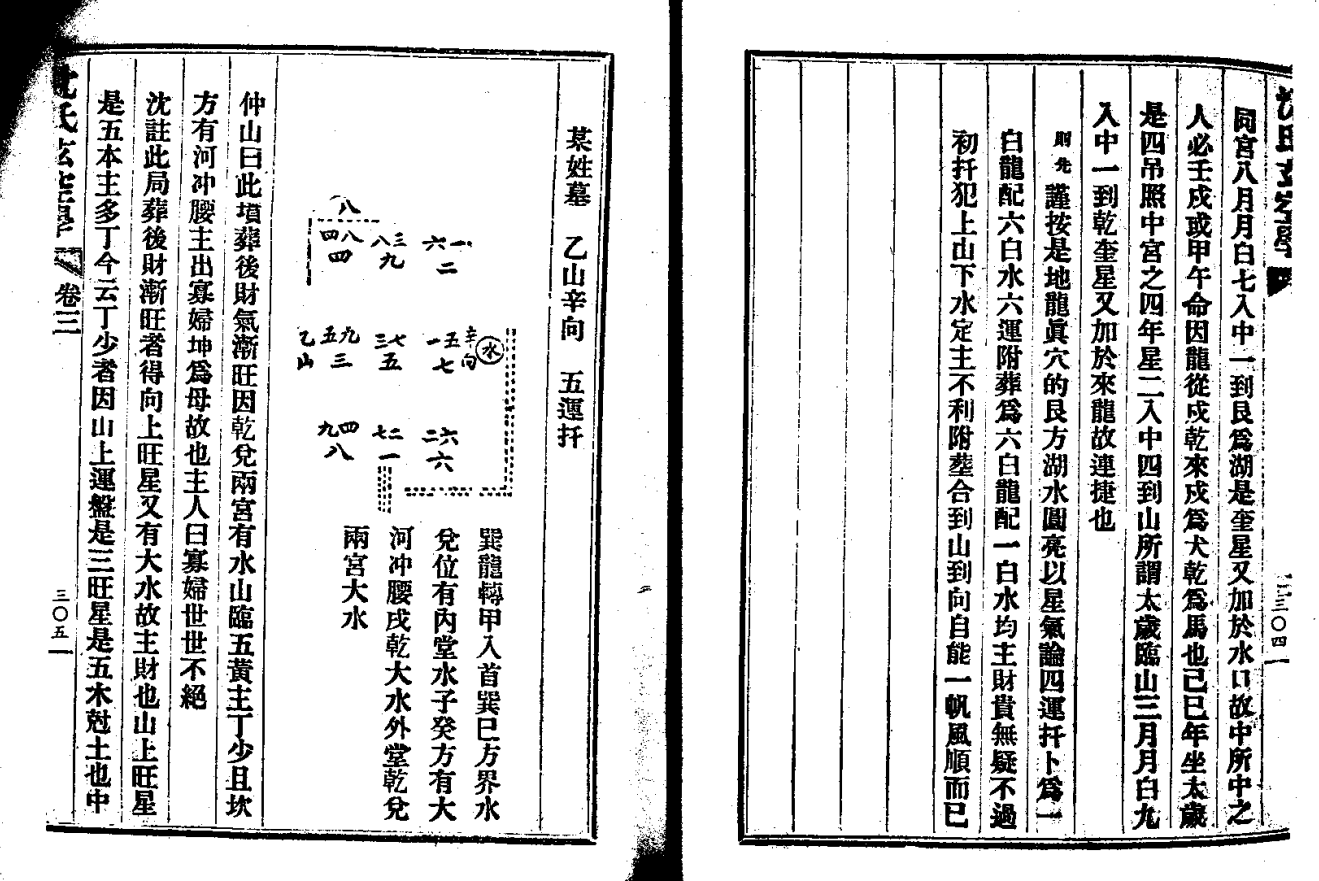 沈氏玄空學
三〇四
同宮八月月白七入中一到艮爲湖是奎星又加於水口故中所中之
人必壬戌或甲午命因龍從戌乾來戌爲犬乾爲馬也己巳年坐太歲
是四吊照中宮之四年星二入中四到山所謂太歲臨山三月月白九
入中一到乾奎星又加於來龍故連捷也
則先 謹按是地龍眞穴的艮方湖水圓亮以星氣論四運扦卜爲一
白龍配六白水六運附葬爲六白龍配一白水均主財貴無疑不過
初扦犯上山下水定主不利附塟合到山到向自能一帆風順而已
某姓墓 乙山辛向 五運扦
八
四八 八三 六一
四 九 二
乙山 五九 三七 一五 辛向 水
三 五 七
九四 七二 二六
八 一 六
巽龍轉甲入首巽巳方界水
兌位有內堂水子癸方有大
河冲腰戌乾大水外堂乾兌
兩宮大水
仲山曰此墳葬後財氣漸旺因乾兌兩宮有水山臨五黃主丁少且坎
方有河冲腰主出寡婦坤爲母故也主人曰寡婦世世不絕
沈註此局葬後財漸旺者得向上旺星又有大水故主財也山上旺星
是五本主多丁今云丁少者因山上運盤是三旺星是五木尅土也中
沈氏玄空學 卷三
三〇五